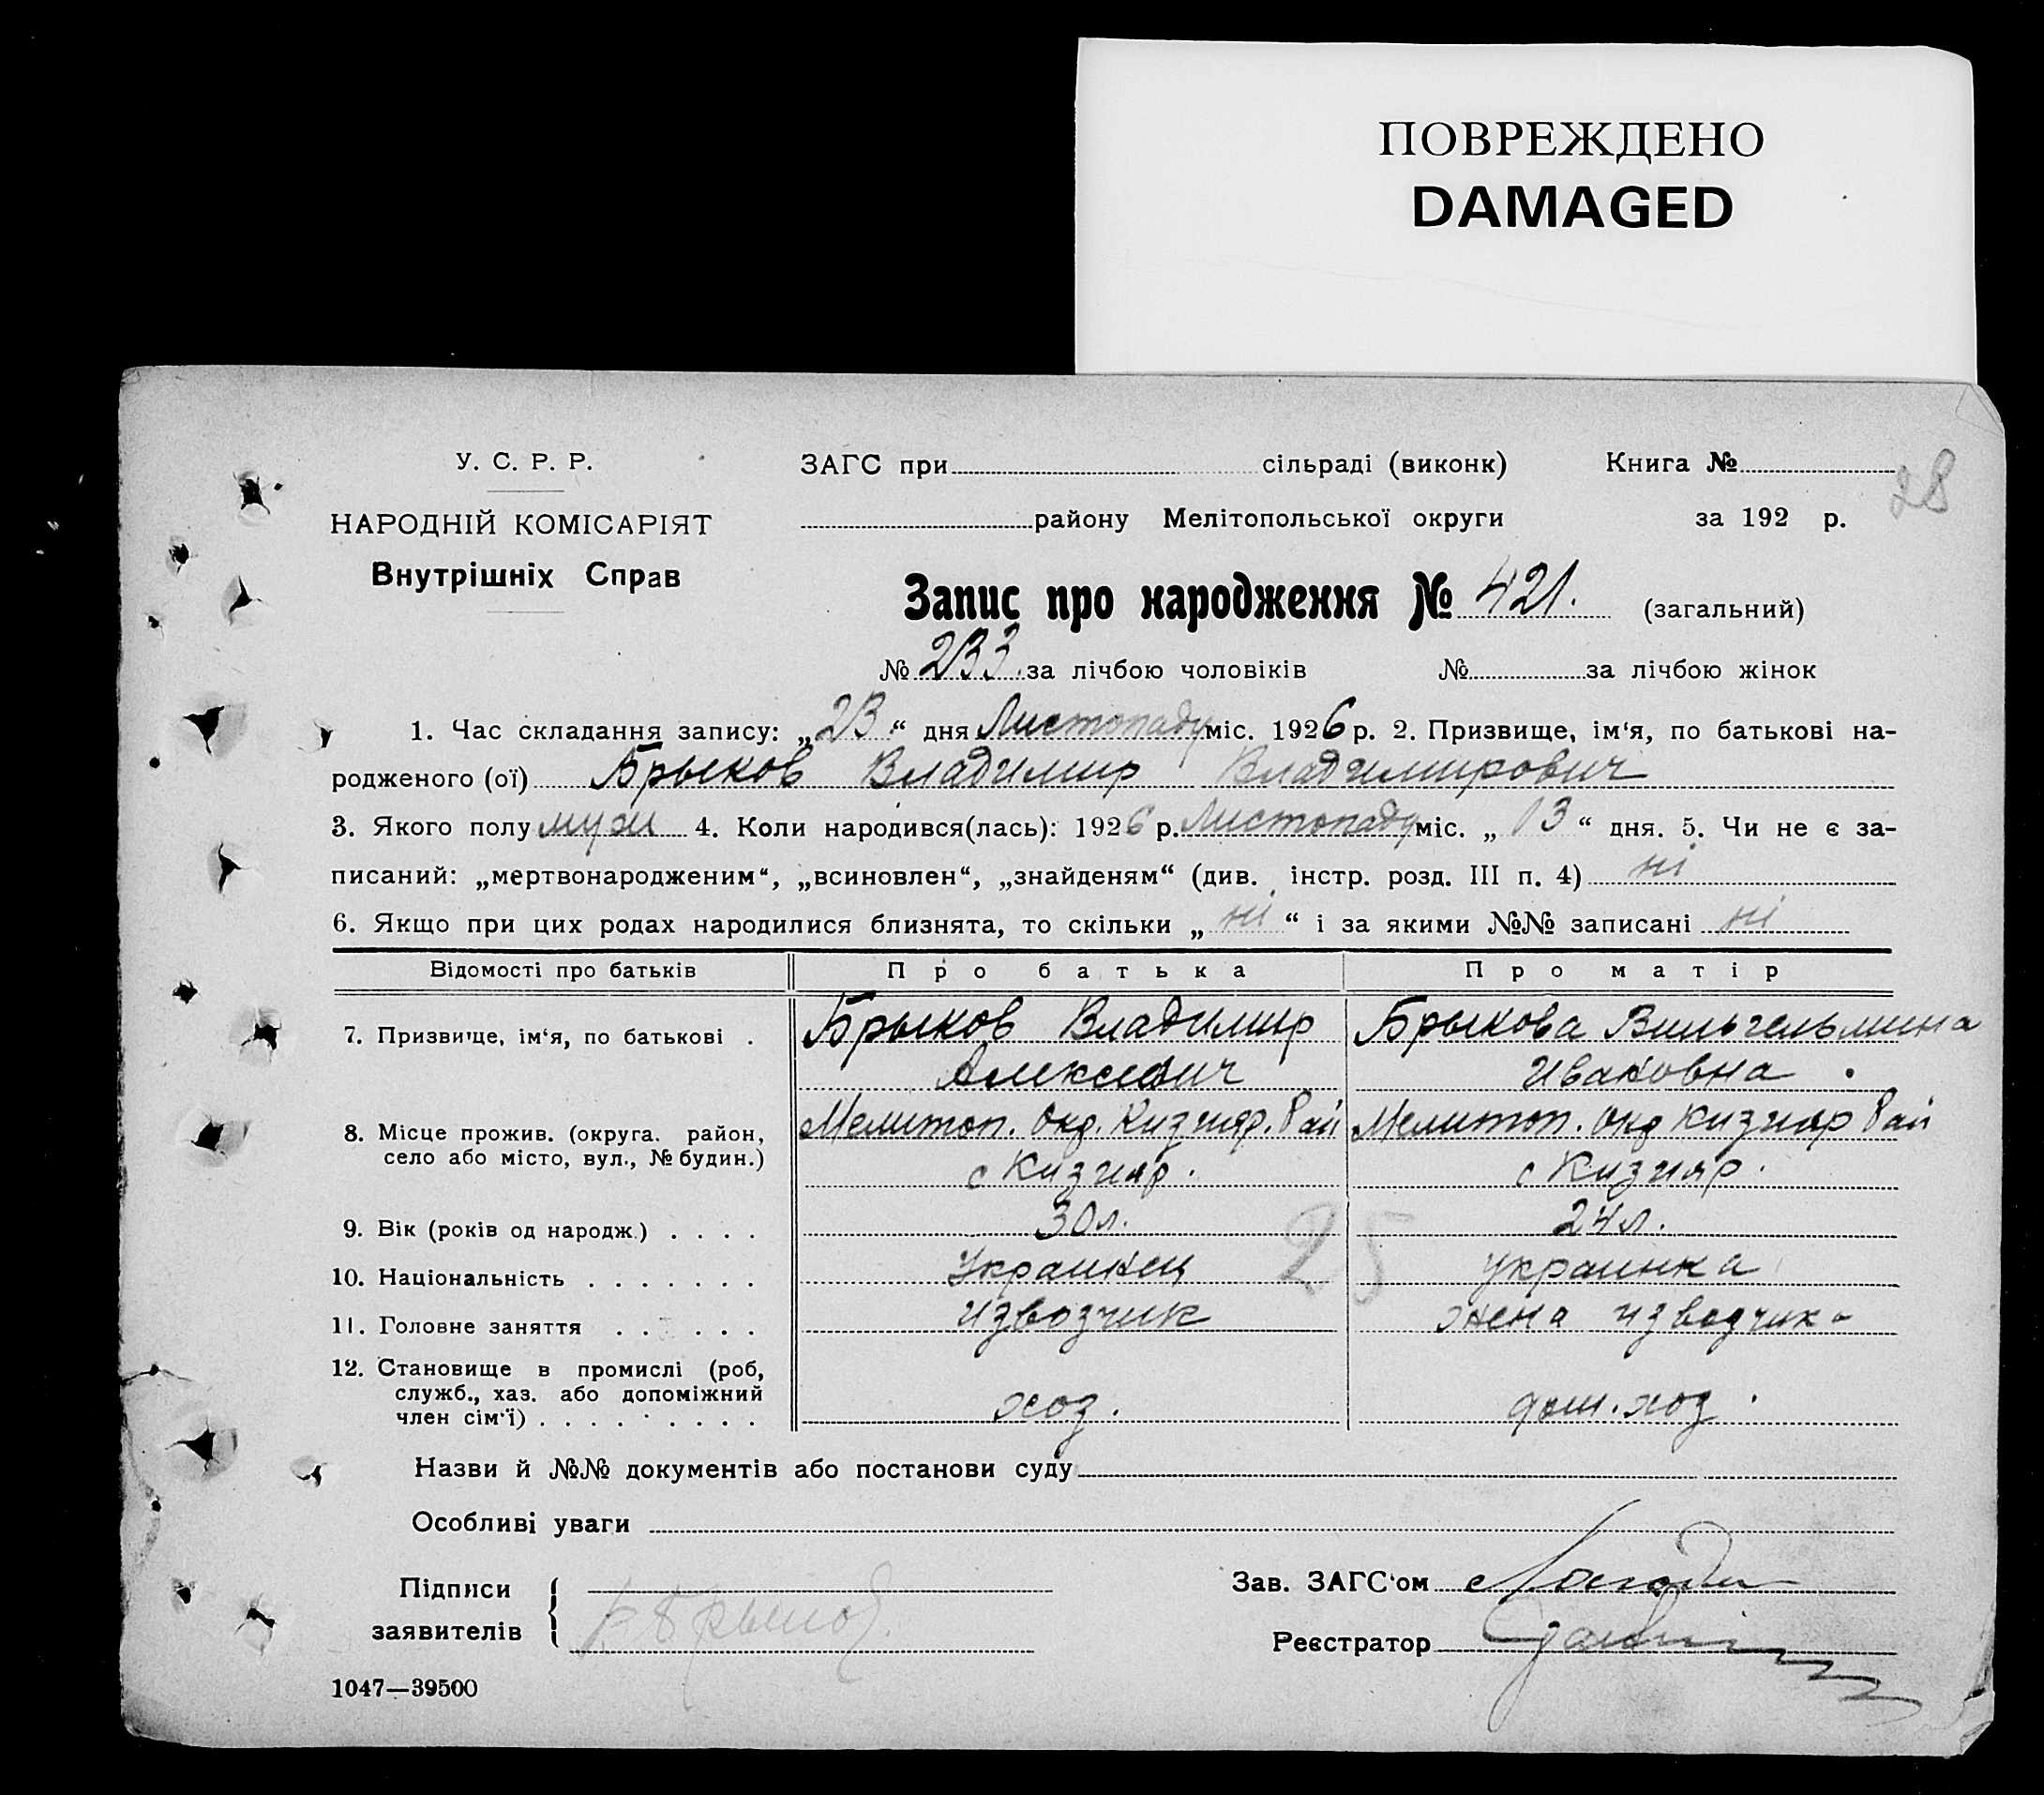 ПОВРЕЖДЕНО
DAMAGED
У. С. Р. Р.
НАРОДНІЙ КОМІСАРІЯТ
Внутрішніх Справ
ЗАГС при сільраді (виконк) Книга №
28
району Мелітопольської округи за 192 р.
Запис про народження № 421. (загальний)
№ 233. за лічбою чоловіків № за лічбою жінок
1. Час складання запису: „23“ дня Листопаду міс. 1926 р. 2. Призвище, ім‘я, по батькові на-
родженого (ої) Брыков Владимир Владимирович
3. Якого полу муж 4. Коли народився(лась): 1926 р. Листопаду міс. „13“ дня. 5. Чи не є за-
писаний: „мертвонародженим“, „всиновлен“, „знайденям“ (див. інстр. розд. III п. 4) ні
6. Якщо при цих родах народилися близнята, то скільки „ні“ і за якими №№ записані ні
Відомості про батьків Про батька Про матір
7. Призвище, ім‘я, по батькові . Брыков Владимир Брыкова Вильгельмина
Алексеевич Ивановна
8. Місце прожив. (округа. район, Мелитоп. Окр. Кизияр. Рай Мелитоп. Окр Кизияр Рай
село або місто, вул., № будин.) с Кизияр. с Кизияр.
9. Вік (років од народж.) . . . . 30л. 24л.
25
10. Національність . . . . . . . Украинец украинка
11. Головне заняття . . . . . извозчик жена извозчика
12. Становище в промислі (роб,
служб., хаз. або допоміжний
член сім‘ї) . . . . . . . . . хоз. дом. хоз.
Назви й №№ документів або постанови суду
Особливі уваги
Підписи
заявителів
Зав. ЗАГС‘ом
Реєстратор
1047—39500